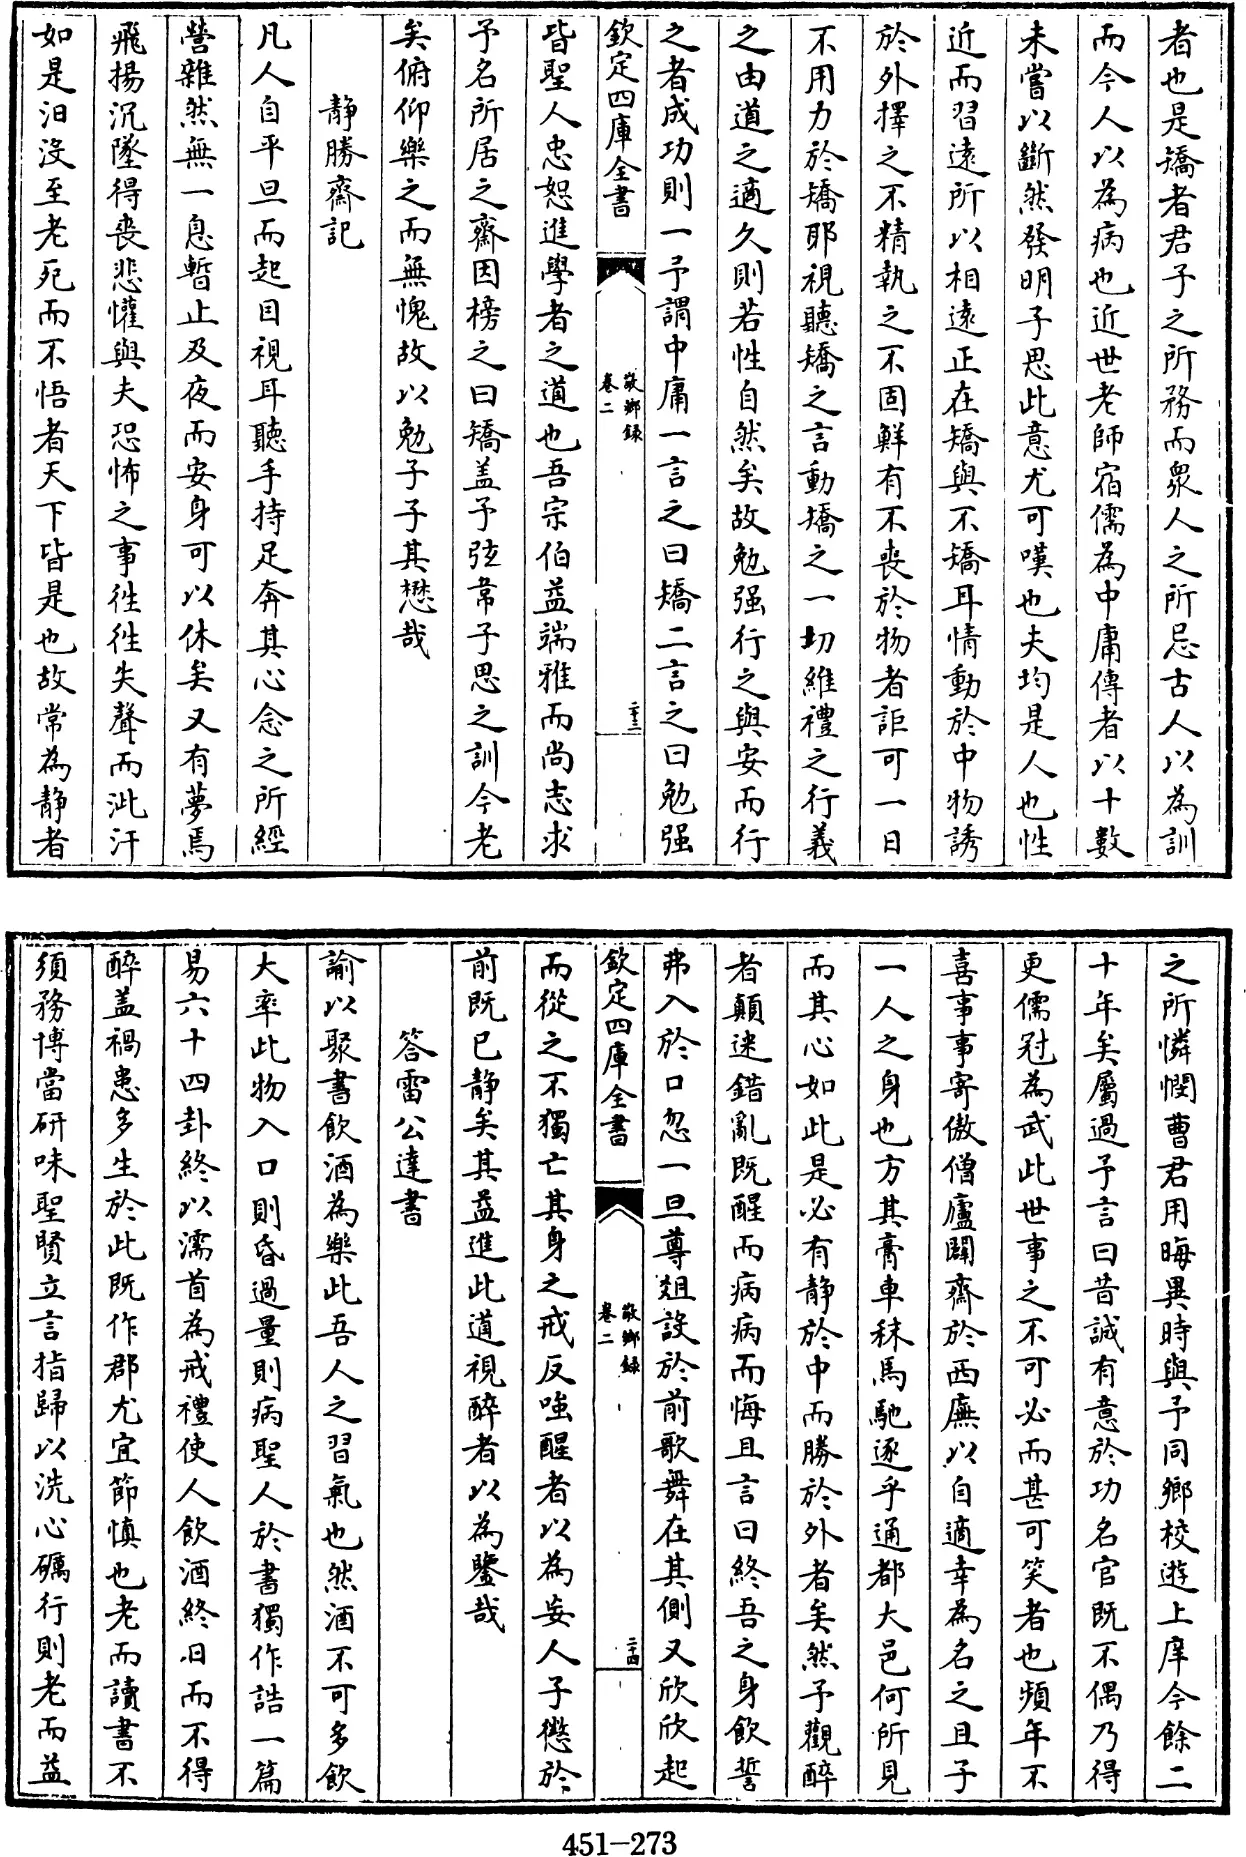 者也是矯者君子之所務而衆人之所忌古人以為訓
而今人以為病也近世老師宿儒為中庸傳者以十數
未嘗以斷然發明子思此意尤可嘆也夫均是人也性
近而習遠所以相遠正在矯與不矯耳情動於中物誘
於外擇之不精執之不固鮮有不喪於物者詎可一日
不用力於矯耶視聽矯之言動矯之一切維禮之行義
之由道之適久則若性自然矣故勉强行之與安而行
之者成功則一予謂中庸一言之曰矯二言之曰勉强
欽定四庫全書
敬鄉錄
卷二
二十三
皆聖人忠恕進學者之道也吾宗伯益端雅而尚志求
予名所居之齋因榜之曰矯盖予弦韋子思之訓今老
矣俯仰樂之而無愧故以勉子子其懋哉
靜勝齋記
凡人自平旦而起目視耳聽手持足奔其心念之所經
營雜然無一息暫止及夜而安身可以休矣又有夢焉
飛揚沉墜得喪悲懽與夫恐怖之事徃徃失聲而泚汗
如是汨没至老死而不悟者天下皆是也故常為靜者
之所憐憫曹君用晦異時與予同鄉校遊上庠今餘二
十年矣屬過予言曰昔誠有意於功名官既不偶乃得
更儒冠為武此世事之不可必而甚可笑者也頻年不
喜事事寄傲僧廬闢齋於西廡以自適幸為名之且子
一人之身也方其膏車秣馬馳逐乎通都大邑何所見
而其心如此是必有靜於中而勝於外者矣然予觀醉
者顛迷錯亂既醒而病病而悔且言曰終吾之身飲誓
弗入於口忽一旦尊爼設於前歌舞在其側又欣欣起
欽定四庫全書
敬鄉錄
卷二
二十四
而從之不獨亡其身之戒反嗤醒者以為妄人子懲於
前既已靜矣其益進此道視醉者以為鑒哉
答雷公達書
諭以聚書飲酒為樂此吾人之習氣也然酒不可多飲
大率此物入口則昏過量則病聖人於書獨作誥一篇
易六十四卦終以濡首為戒禮使人飲酒終日而不得
醉盖禍患多生於此既作郡尤宜節慎也老而讀書不
須務博當研味聖賢立言指歸以洗心礪行則老而益
451-273